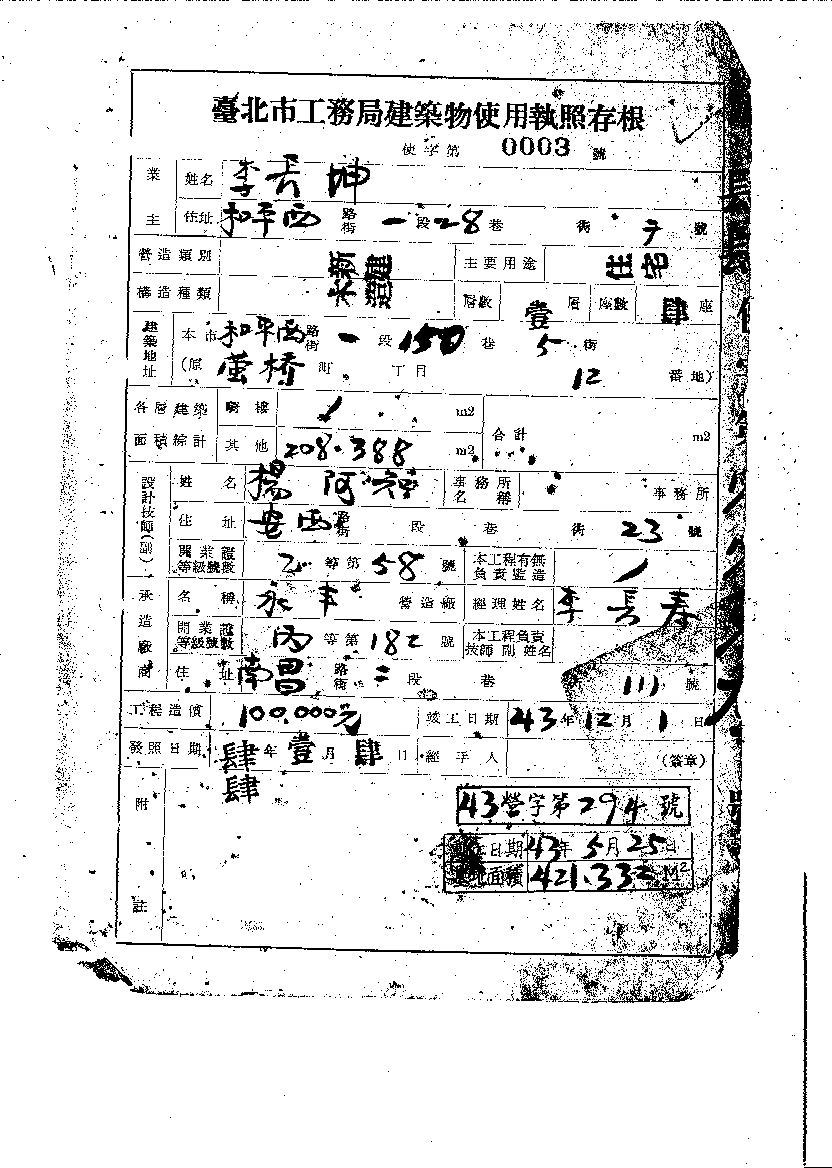 臺北市工務局建築物使用執照存根
使字第 0003 號
業主 姓名 李長坤
住址 和平西 路街 一段 28 巷 衖 号 號
營造類別 新建 主要用途 住宅
構造種類 木造 層數 壹 層 座數 肆 座
建築地址 本市 和平西 路街 一 段 150 巷 5 衖
(原 螢橋 町 丁目 12 番地)
各層建築面積綜計 騎樓 / m2 合計 m2
其他 208.388 m2
設計技師(副) 姓名 楊阿 事務所名稱 事務所
住址 安西 路街 段 巷 衖 23 號
開業證等級號數 乙 等第 58 號 本工程有無負責監造 /
承造廠商 名稱 永丰 營造廠 經理姓名 李長春
開業證等級號數 丙 等第 182 號 本工程負責技師副姓名
住址 南昌 路街 二 段 巷 111 號
工程造價 100.000元 竣工日期 43 年 12 月 1 日
發照日期 肆肆 年 壹 月 肆 日 經手人 (簽章)
附註
43營字第294號
日期 43年5月25日
面積 421.332 M2